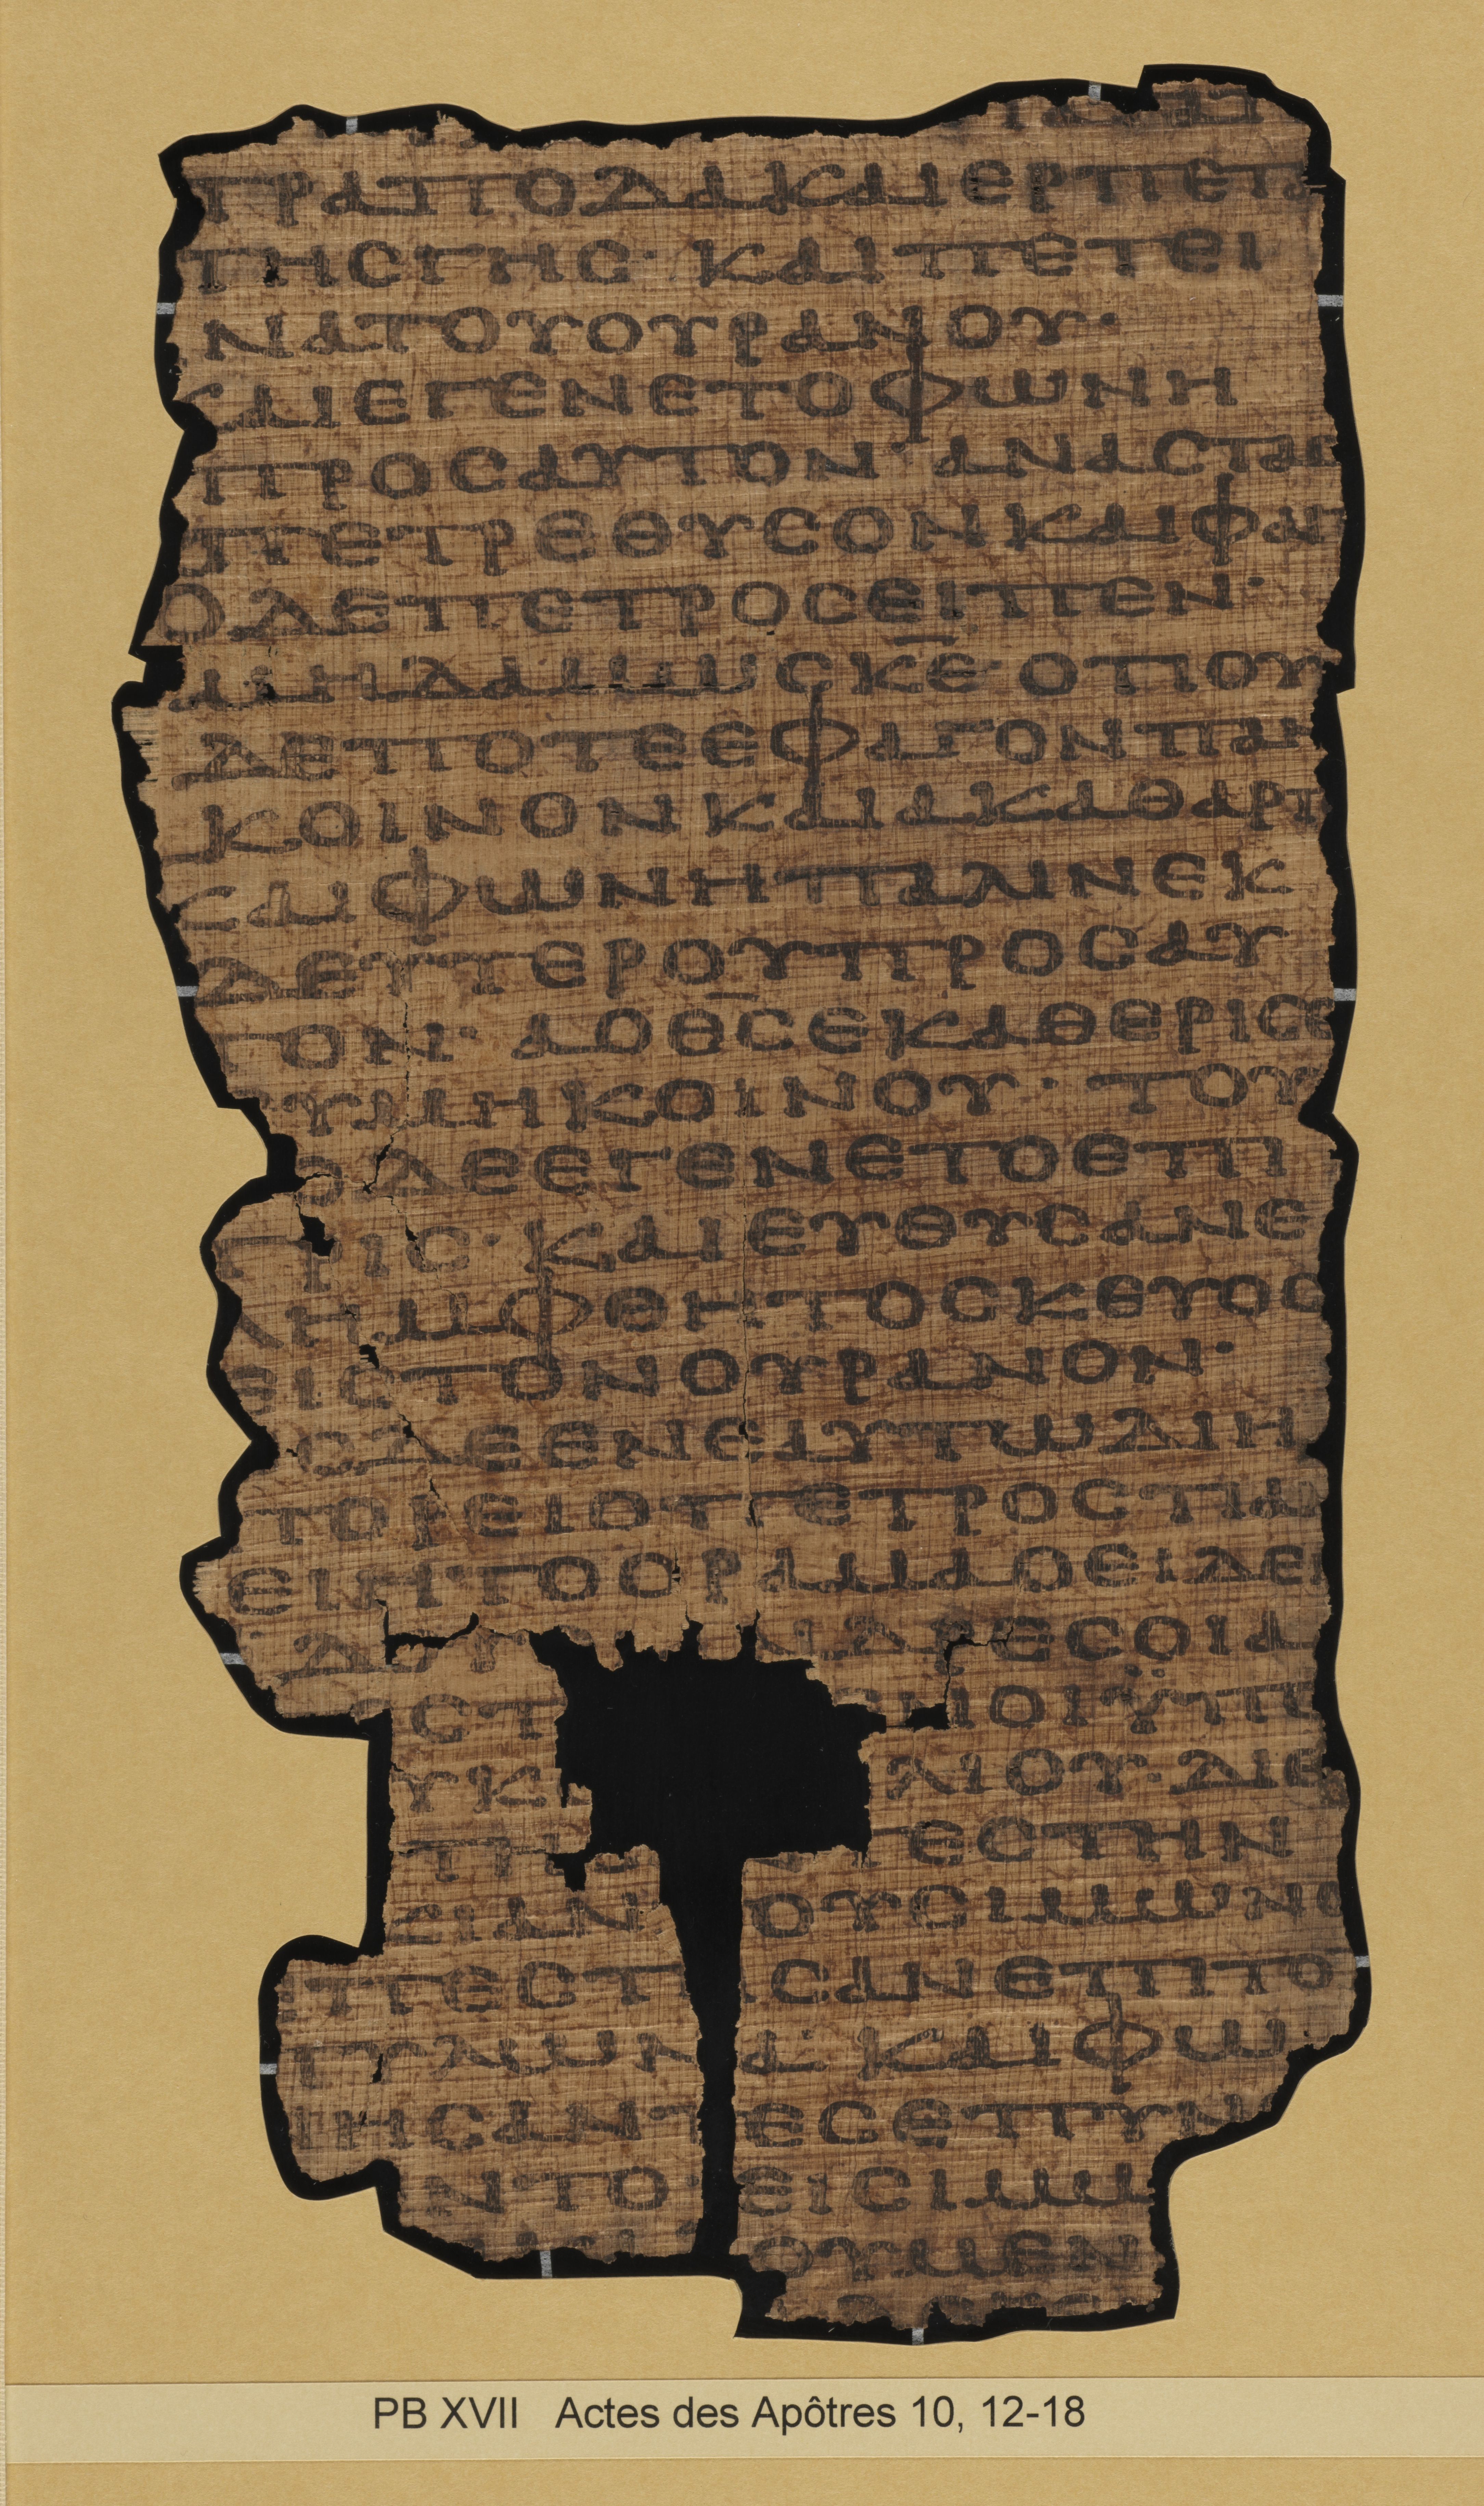 ΤΡΑΠΟΔΑΚΑΙΕΡΠΕΤΑ
ΤΗСΓΗС· ΚΑΙΠΕΤΕΙ
ΝΑΤΟΥΟΥΡΑΝΟΥ·
ΚΑΙΕΓΕΝΕΤΟΦΩΝΗ
ΠΡΟСΑΥΤΟΝ· ΑΝΑСΤΑС
ΠΕΤΡΕΘΥСΟΝΚΑΙΦΑΓ
ΟΔΕΠΕΤΡΟСΕΙΠΕΝ·
ΜΗΔΑΜΩСΚ̅Ε̅· ΟΤΙΟΥ
ΔΕΠΟΤΕΕΦΑΓΟΝΠΑΝ
ΚΟΙΝΟΝΚΑΙΑΚΑΘΑΡΤ
ΚΑΙΦΩΝΗΠΑΛΙΝΕΚ
ΔΕΥΤΕΡΟΥΠΡΟСΑΥ
ΤΟΝ· ΑΟΘ̅С̅ΕΚΑΘΕΡΙСΕ
СΥΜΗΚΟΙΝΟΥ· ΤΟΥ
ΤΟΔΕΕΓΕΝΕΤΟΕΠΙ
ΤΡΙС· ΚΑΙΕΥΘΥСΑΝΕ
ΛΗΜΦΘΗΤΟСΚΕΥΟС
ΕΙСΤΟΝΟΥΡΑΝΟΝ·
ΩСΔΕΕΝΕΑΥΤΩΔΙΗ
ΠΟΡΕΙΟΠΕΤΡΟСΤΙΑΝ
ΕΙΗΤΟΟΡΑΜΑΟΕΙΔΕΝ
ΙΔΟΥ ΑΝΔΡΕСΟΙΑ
СΤ ΝΟΙΫΠΟ
ΥΚ ΛΙΟΥ· ΔΙΕ
ΤΕСΤΗΝ
ΚΙΑΝ ΟΥСΙΜΩΝΟ
ΕΠΕСΤΗСΑΝΕΠΙΤΟ
ΠΥΛΩΝΑ· ΚΑΙΦΩ
ΝΗСΑΝΤΕСΕΠΥΝ
ΝΤΟ ΕΙСΙΜΩ
ΟΥΜΕΝ
PB XVII Actes des Apôtres 10, 12-18